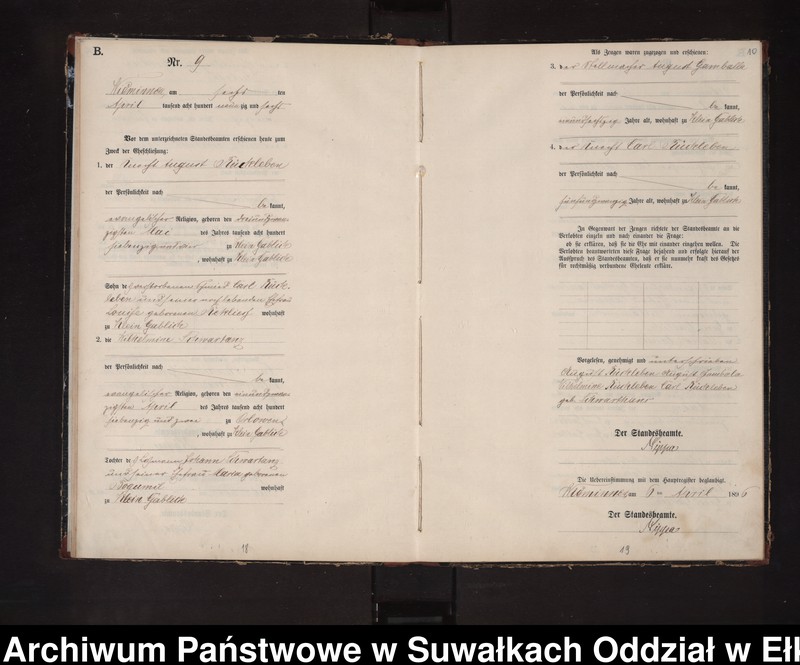 B.
Nr. 9
am sechs ten
April tausend acht hundert neun zig und sechs
Vor dem unterzeichneten Standesbeamten erschienen heute zum
Zweck der Eheschließung:
1. der Knecht August Rückleben
der Persönlichkeit nach
be kannt,
evangelischer Religion, geboren den
zigsten Mai des Jahres tausend acht hundert
siebenzig zu Klein Gablick
, wohnhaft zu Klein Gablick
Sohn des verstorbenen Carl Rück-
leben und seiner noch lebenden Ehefrau
Louise geborenen wohnhaft
zu Klein Gablick
2. die Wilhelmine
der Persönlichkeit nach
be kannt,
evangelischer Religion, geboren den
zigsten April des Jahres tausend acht hundert
siebenzig und zwei zu Orlowen
, wohnhaft zu Klein Gablick
Tochter des Johann
und seiner Ehefrau Maria geborenen
Bogumil wohnhaft
zu Klein Gablick
18
10
Als Zeugen waren zugezogen und erschienen:
3. der Stellmacher August Gamballa
der Persönlichkeit nach
be kannt,
Jahre alt, wohnhaft zu Klein Gablick
4. der Knecht Carl Rückleben
der Persönlichkeit nach
be kannt,
fünfundzwanzig Jahre alt, wohnhaft zu Klein Gablick
In Gegenwart der Zeugen richtete der Standesbeamte an die
Verlobten einzeln und nach einander die Frage:
ob sie erklären, daß sie die Ehe mit einander eingehen wollen. Die
Verlobten beantworteten diese Frage bejahend und erfolgte hierauf der
Ausspruch des Standesbeamten, daß er sie nunmehr kraft des Gesetzes
für rechtmäßig verbundene Eheleute erkläre.
Vorgelesen, genehmigt und unterschrieben
August Rückleben August Gambala
Wilhelmine Rückleben Carl Rückleben
geb.
Der Standesbeamte.
Nippa
Die Uebereinstimmung mit dem Hauptregister beglaubigt.
am 6ten April 1896
Der Standesbeamte.
Nippa
19
Archiwum Państwowe w Suwałkach Oddział w Ełk